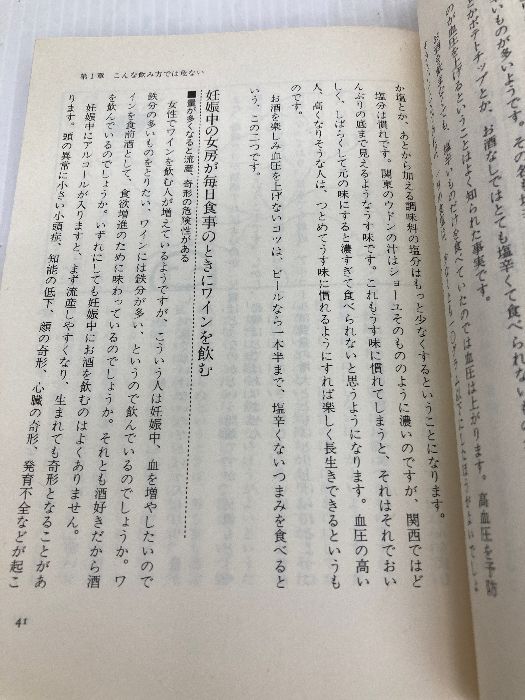 いものが多いようです。その
とかポテトチップとか、お酒なしではとても塩辛くて食べられない
のが血圧を上げるということはよく知られた事実です。
けを食べていたのでは血圧は上がります。高血圧を予防
第1章 こんな飲み方では危ない
か塩とか、あとから加える調味料の塩分はもっと少なくするということになります。
塩分は慣れです。関東のウドンの汁はショーユそのもののように濃いのですが、関西ではど
んぶりの底まで見えるようなうす味です。これもうす味に慣れてしまうと、それはそれでおい
しく、しばらくして元の味にすると濃すぎて食べられないと思うようになります。血圧の高い
人、高くなりそうな人は、つとめてうす味に慣れるようにすれば楽しく長生きできるというも
のです。
お酒を楽しみ血圧を上げないコツは、ビールなら一本半まで、塩辛くないつまみを食べると
いう、この二つです。
妊娠中の女房が毎日食事のときにワインを飲む
■量が多くなると流産、奇形の危険性がある
女性でワインを飲む人が増えているようですが、こういう人は妊娠中、血を増やしたいので
鉄分の多いものをとりたい、ワインには鉄分が多い、というので飲んでいるのでしょうか。ワ
インを食前酒として、食欲増進のために味わっているのでしょうか。それとも酒好きだから酒
を飲んでいるのでしょうか。いずれにしても妊娠中にお酒を飲むのはよくありません。
妊娠中にアルコールが入りますと、まず流産しやすくなり、生まれても奇形となることがあ
ります。頭の異常に小さい小頭症、知能の低下、顔の奇形、心臓の奇形、発育不全などが起こ
41